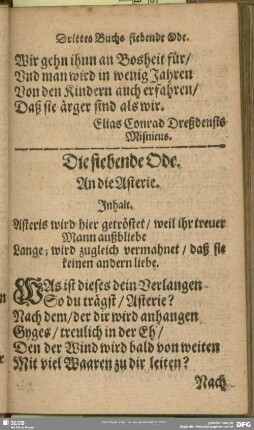 Drittes Buchs siebende Ode.
Wir gehn ihnn an Bosheit für/
Vnd man wird in wenig Jahren
Von den Kindern auch erfahren/
Daß sie ärger sind als wir.
Elias Conrad Dreßdensis
Misnicus.
Die siebende Ode.
An die Asterie.
Inhalt.
Asteris wird hier getröstet / weil ihr treuer
Mann außbliebe
Lange; wird zugleich vermahnet / daß sie
keinen andern liebe.
WAs ist dieses dein Verlangen
So du trägst / Asterie?
Nach dem / der dir wird anhangen
Gyges / treulich in der Eh/
Den der Wind wird bald von weiten
Mit viel Waaren zu dir leiten?
Nach
SLUB
DFG